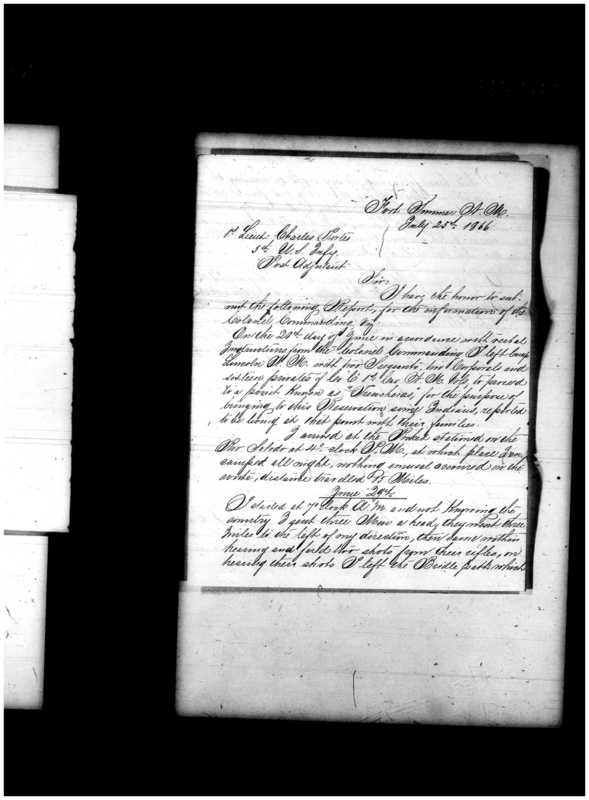 Fort Sumner N. M.
July 25th 1866
1st Lieut Charles Porter
5th U.S Infy
Post Adjutant
Sir,
I have the honor to sub-
mit the following Report, for the information of the
Colonel, Commanding, viz,
On the 28th day of June in accordance with verbal
Instructions from the Colonel Commanding I left Camp
Lincoln N. M. with two Sergeants, two Corporals and
sixteen privates of Co E 1st Cav N. M. Vols, to proceed
to a point known as Trencheras, for the purpose of
bringing to this Reservation some Indians, reported
to be living at that point with their families.
I arrived at the Picket stationed on the
Rio at 4 O'clock P.M., at which place I en-
camped all night, nothing unusual occurred on the
route, distance travelled Miles.
June 29th
I started at 7 O'clock A M and not knowing the
country I sent three Men a head, they went three
Miles to the left of my direction, then came within
hearing and fired two shots from their rifles, on
hearing their shots I left the Bridle path which